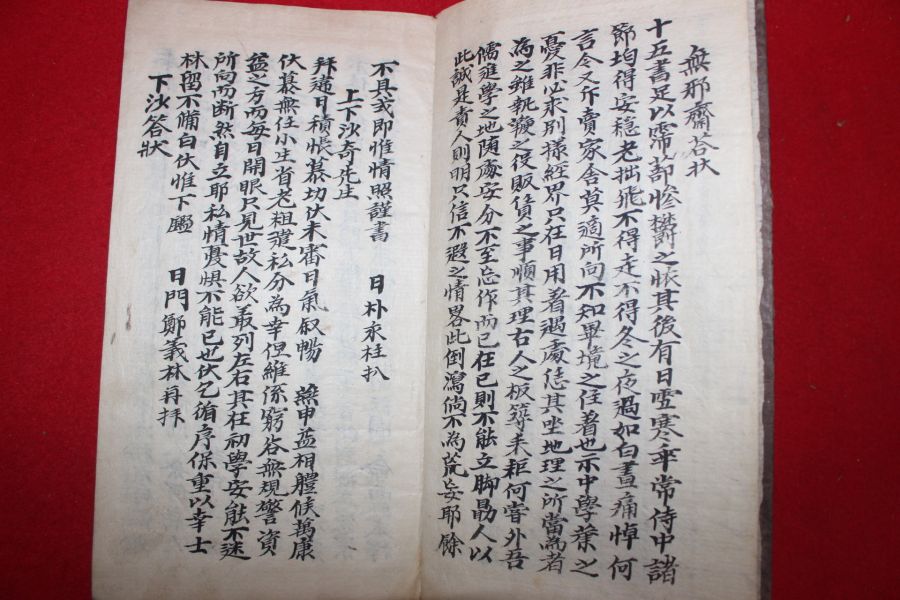 無那齋答狀
十五書足以霈莭慘欝之悵其後有日雪寒乖常侍中諸
節均得安穏老拙飛不得走不得冬之夜過如白晝痛悼何
言令又斥賣家舍莫適所向不知畢境之住着也示中學業之
憂非必求別樣経界只在日用着遇處恁其坐地理之所當為者
為之雖執鞭之役販貨之事順其理古人之板築耒耟何甞外吾
儒進學之地随處安分不至忘作而已在已則不能立脚勗人以
此誠是責人則明只信不遐之情畧此倒瀉倘不為荒妄耶餘
不具式即惟情照謹書　日朴永柱扒
上下沙奇先生
拜違日積悵慕切伏未審日氣叙暢　燕申益相軆候萬康
伏慕無任小生省老粗遣私分為幸但維係窮谷無規警資
益之方而每日開眼只見世故人欲㝡列左右其在初學安能不迷
所向而断然自立耶私情憂惧不能已也伏乞循序保重以幸士
林留不備白伏惟下鑑　日門鄭義林再拜
下沙答狀